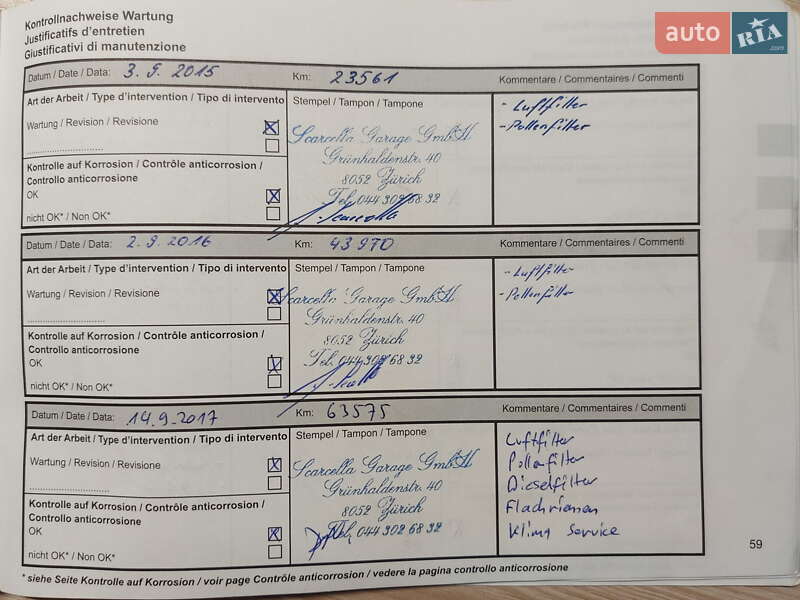 Kontrollnachweise Wartung
Justificatifs d'entretien
Giustificativi di manutenzione
auto RIA.com
Datum / Date / Data: 3. 9. 2015 Km: 23561 Kommentare / Commentaires / Commenti
Art der Arbeit / Type d'intervention / Tipo di intervento
Wartung / Revision / Revisione
Kontrolle auf Korrosion / Contrôle anticorrosion /
Controllo anticorrosione
OK
nicht OK* / Non OK*
Stempel / Tampon / Tampone
Scarcella Garage GmbH
Grünhaldenstr. 40
8052 Zürich
Tel. 044 302 68 32
- Luftfilter
- Pollenfilter
Datum / Date / Data: 2. 9. 2016 Km: 43970 Kommentare / Commentaires / Commenti
Art der Arbeit / Type d'intervention / Tipo di intervento
Wartung / Revision / Revisione
Kontrolle auf Korrosion / Contrôle anticorrosion /
Controllo anticorrosione
OK
nicht OK* / Non OK*
Stempel / Tampon / Tampone
Scarcella Garage GmbH
Grünhaldenstr. 40
8052 Zürich
Tel. 044 302 68 32
- Luftfilter
- Pollenfilter
Datum / Date / Data: 14.9.2017 Km: 63575 Kommentare / Commentaires / Commenti
Art der Arbeit / Type d'intervention / Tipo di intervento
Wartung / Revision / Revisione
Kontrolle auf Korrosion / Contrôle anticorrosion /
Controllo anticorrosione
OK
nicht OK* / Non OK*
Stempel / Tampon / Tampone
Scarcella Garage GmbH
Grünhaldenstr. 40
8052 Zürich
Tel. 044 302 68 32
Luftfilter
Pollenfilter
Dieselfilter
Flachriemen
Klima Service
59
* siehe Seite Kontrolle auf Korrosion / voir page Contrôle anticorrosion / vedere la pagina controllo anticorrosione